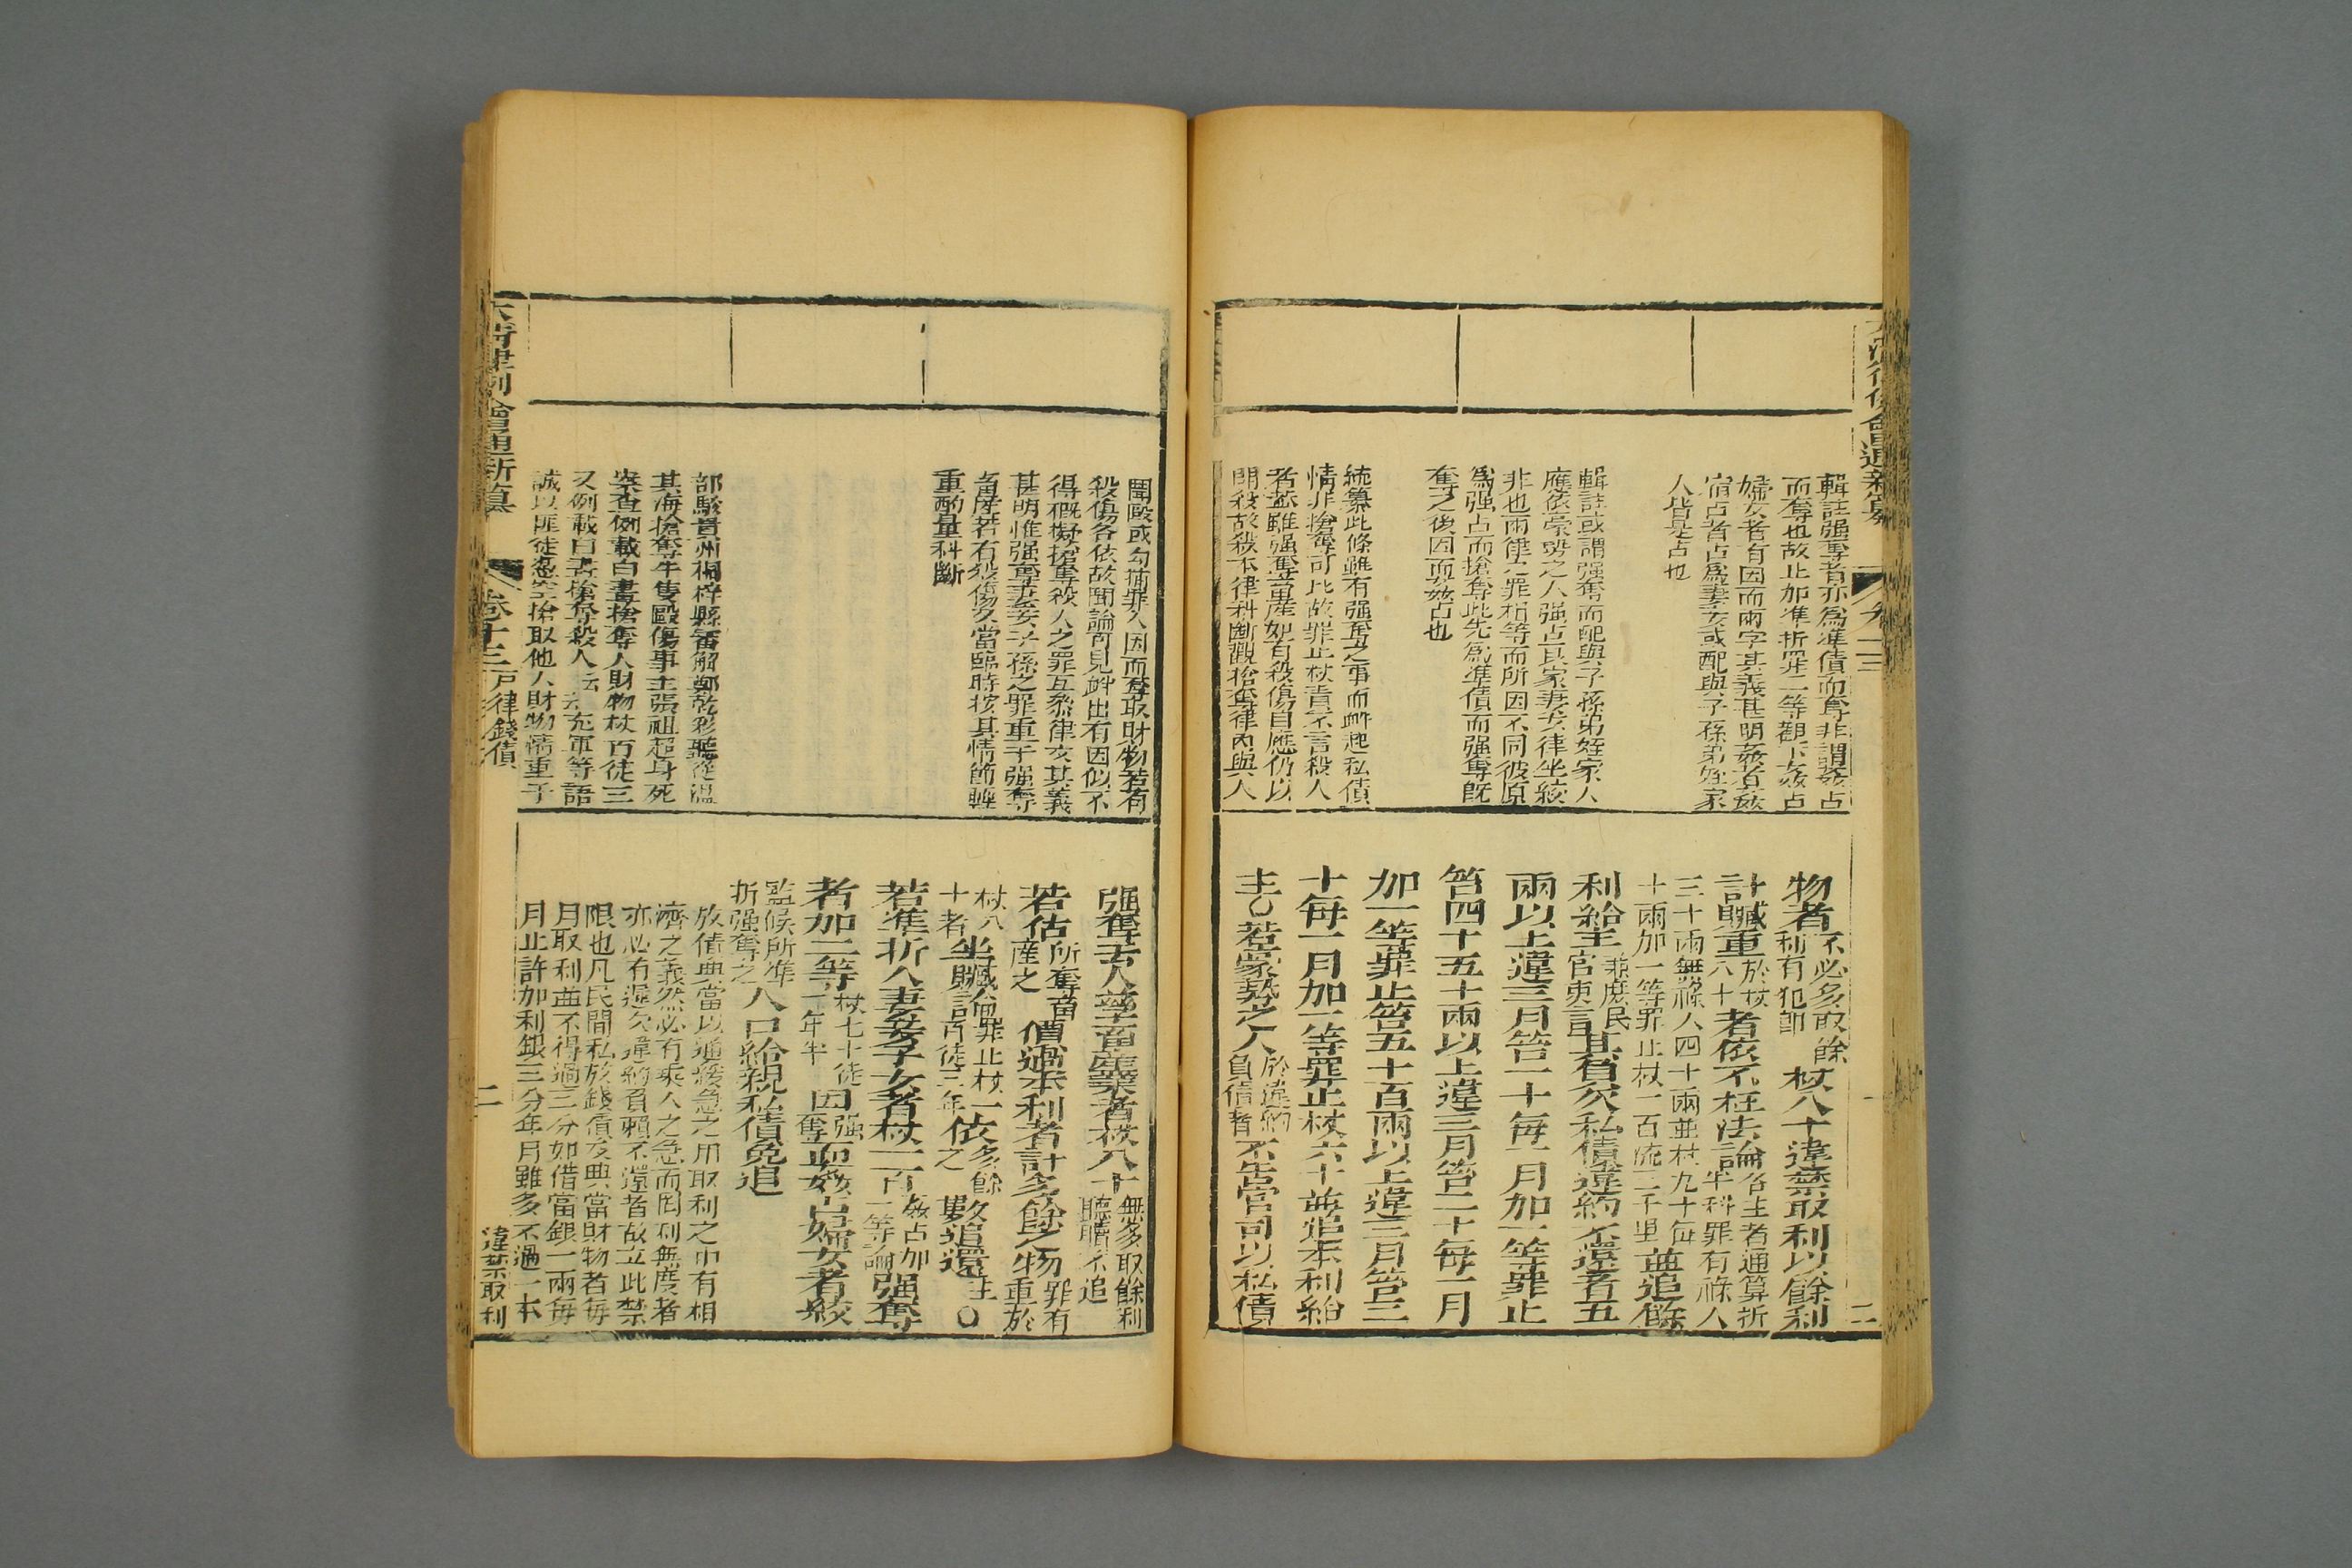 輯註强奪者亦爲准債而奪非謂姦占
而奪也故止加准折罪二等觀下姦占
婦女者有因而兩字其義甚明姦者姦
宿占者占爲妻妾或配與子孫弟姪家
人皆是占也
輯註或謂强奪而配與子孫弟姪家人
應依豪勢之人强占良家妻女律坐絞
非也兩律之罪相等而所因不同彼原
爲强占而搶奪此先爲准債而强奪旣
奪之後因而姦占也
統纂此條雖有强奪之事而衅起私債
情非搶奪可比故罪止杖責不言殺人
者蓋雖强奪畜產如有殺傷自應仍以
鬪殺故殺本律科斷觀搶奪律內與人
物者不必多取餘利有犯卽杖八十違禁取利以餘利
計贓重於杖八十者依不枉法論各主者通算折半科罪有祿人
三十兩無祿人四十兩並杖九十每十兩加一等罪止杖一百流三千里並追餘
利給主兼庶民官吏言其負欠私債違約不還者五
兩以上違三月笞一十每一月加一等罪止
笞四十五十兩以上違三月笞二十每一月
加一等罪止笞五十百兩以上違三月笞三
十每一月加一等罪止杖六十並追本利給
主○若豪勢之人於違約負債者不告官司以私債
鬪毆或勾捕罪人因而奪取財物若有
殺傷各依故鬪論可見衅出有因似不
得概擬搶奪殺人之罪互參律文其義
甚明惟强奪妻妾子孫之罪重于强奪
畜產若有殺傷又當臨時按其情節輕
重酌量科斷
部駁貴州桐梓縣審解鄭乾彩聽從溫
其海搶奪牛隻毆傷事主張祖超身死
案查例載白晝搶奪人財物杖百徒三
又例載白晝搶奪殺人云云充軍等語
誠以匪徒憑空搶取他人財物情重于
强奪去人孳畜產業者杖八十無多取餘利聽贖不追
若估所奪畜產之價過本利者計多餘之物罪有重於
杖八十者坐贓論罪止杖一百徒三年依多餘之數追還主○
若準折人妻妾子女者杖一百姦占加一等論强奪
者加二等杖七十徒一年半因强奪而姦占婦女者絞
監候所準折强奪之人口給親私債免追
放債典當以通緩急之用取利之中有相
濟之義然必有乘人之急而罔利無度者
亦必有遷久違約負賴不還者故立此禁
限也凡民間私放錢債及典當財物者每
月取利並不得過三分如借當銀一兩每
月止許加利銀三分年月雖多不過一本
大淸律例會通新纂
卷十三戶律錢債
二
違禁取利